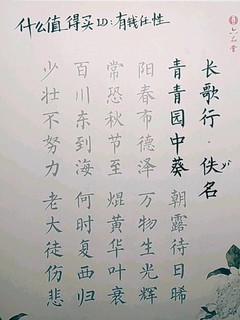 什么值得买ID:有钱任性
长歌行·佚名
青青园中葵 朝露待日晞
阳春布德泽 万物生光辉
常恐秋节至 焜黄华叶衰
百川东到海 何时复西归
少壮不努力 老大徒伤悲